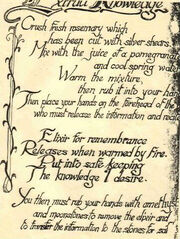 Knowledge
Crush fresh rosemary which
has been cut with silver shears.
Mix with the juice of a pomegrana
and cool spring wa
Warm the mixture,
then rub it into your ha
Then place your hands on the forehead of the
who must release the information and reci
Elixir for remembrance
Releases when warmed by fire.
Put into safe keeping
The knowledge I desire.
You then must rub your hands with amethys
and moonstones to remove the elixir and
to transfer the information to the stones for saf